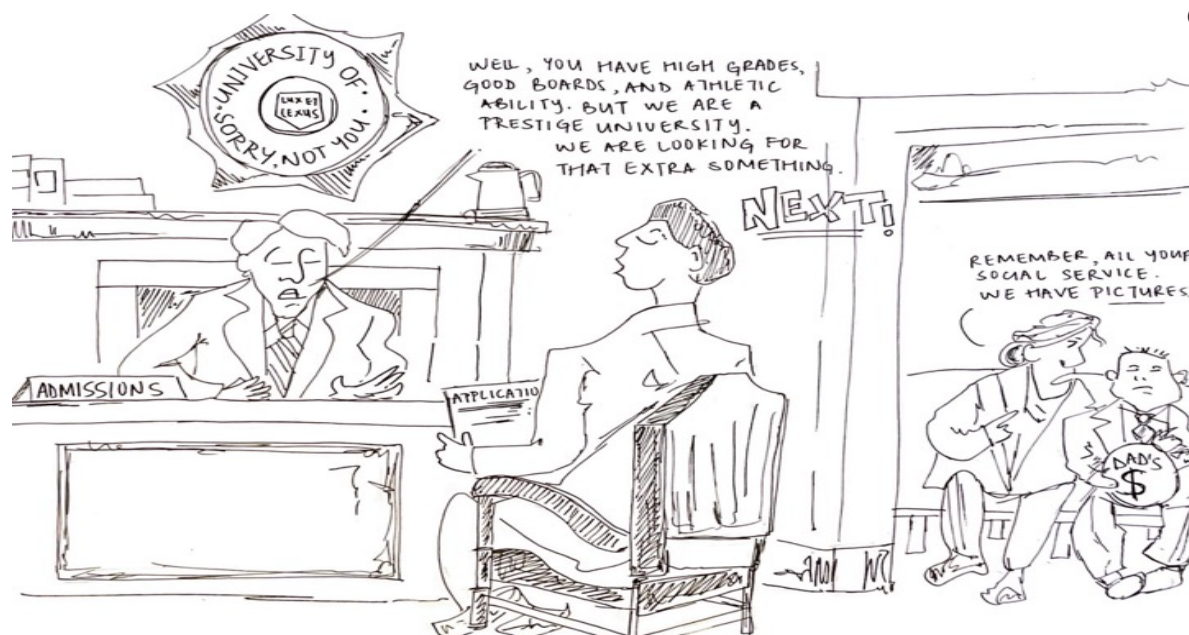 UNIVERSITY OF
SORRY, NOT YOU
LUX ET
LEXUS
WELL, YOU HAVE HIGH GRADES,
GOOD BOARDS, AND ATHLETIC
ABILITY. BUT WE ARE A
PRESTIGE UNIVERSITY.
WE ARE LOOKING FOR
THAT EXTRA SOMETHING.
NEXT!
REMEMBER, ALL YOUR
SOCIAL SERVICE.
WE HAVE PICTURES
ADMISSIONS
APPLICATIO
DAD'S
$